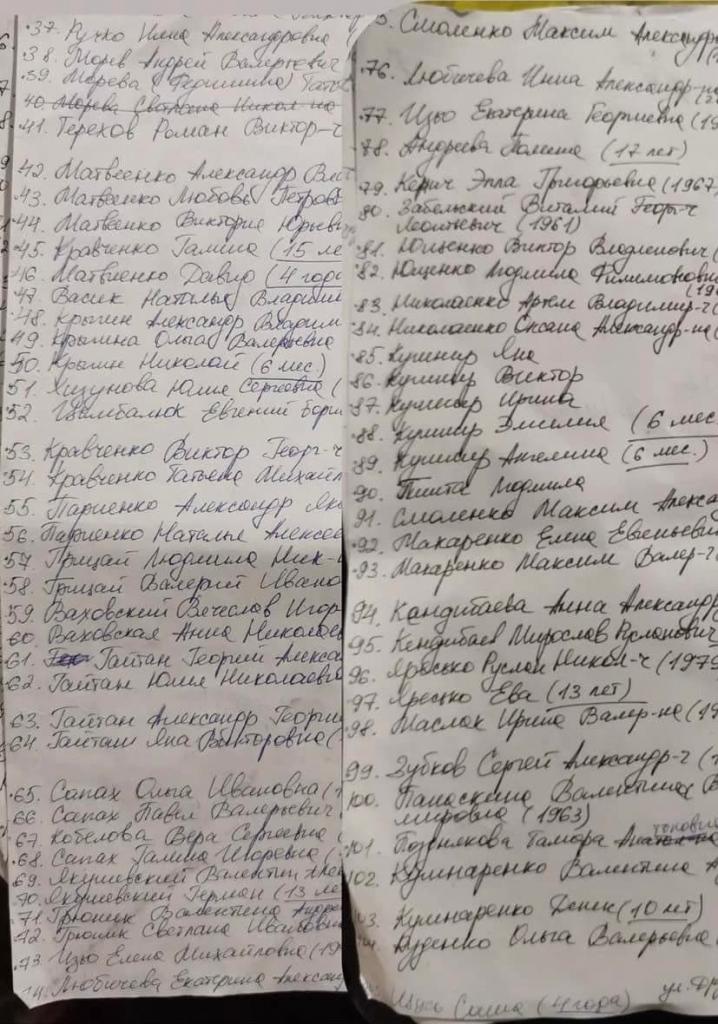 37. Ручко Инна Александровна (
38. Морев Андрей Валерьевич
39. Морева (
40. Морева Светлана Никол-на
41. Терехов Роман Виктор-ч
42. Матвеенко Александр
43. Матвеенко Любовь Петров
44. Матвенко Виктория Юрьев
45. Кравченко Галина (15 ле
46. Матвиенко Давид (4 года
47. Васик Наталья Владими
48. Крыгин Александр Владим
49. Крыгина Ольга Валерьевна
50. Крыгин Николай (6 мес.)
51. Хизунова Юлия Сергеевна (
52. Цымбалюк Евгений Бори
53. Кравченко Виктор Георг-ч
54. Кравченко Татьяна Михайл
55. Париенко Александр
56. Париенко Наталья Алексее
57. Грицай Людмила Ник-
58. Грицай Валерий Ивано
59. Ваховский Вячеслав Игор
60. Ваховская Анна Николаев
61. Гайтан Георгий Алекса
62. Гайтан Юлия Николаевна
63. Гайтан Александр Георги
64. Гайтан Яна Викторовна (
65. Сапах Ольга Ивановна (1
66. Сапах Павел Валерьевич
67. Кобелова Вера Сергеевна (
68. Сапах Галина Игоревна (
69. Якушевский Валентин
70. Якушевский Герман (13 ле
71. Грюшик Валентина Андре
72. Грюшик Светлана Ивановн
73. Изью Елена Михайловна (19
74. Любичева Екатерина Александ
Смоленко Максим Александр
76. Любичева Инна Александр-на
77. Изью Екатерина Георгиевна (19
78. Андреева Полина (17 лет)
79. Керич Элла Григорьевна (1967
80. Забельский Виталий Георг-ч
Леонтьевич (1961)
81. Ющенко Виктор Владленович (
82. Ющенко Людмила Филимоновна
(19
83. Николаенко Артем Владимир-ч (
84. Николаенко Оксана Александр-на (
85. Кушнир Яна
86. Кушнир Виктор
87. Кушнир Ирина
88. Кушнир Эмилия (6 мес
89. Кушнир Ангелина (6 мес.)
90. Пшита Людмила
91. Смоленко Максим Алекса
92. Макаренко Елена Евгеньев
93. Макаренко Максим Валер-ч
94. Кандибаева Анна Александр
95. Кендибаев Мирослав Русланович
96. Яресько Руслан Никол-ч (1979
97. Яресько Ева (13 лет)
98. Маслак Ирина Валер-на (19
99. Зубков Сергей Александр-ч (1
100. Панаскина Валентина В
мировна (1963)
101. Позднякова Тамара
102. Кушнаренко Валентина А
103. Кушнаренко Денис (10 лет)
Руденко Ольга Валерьевна
ул.
Саша (4 года)